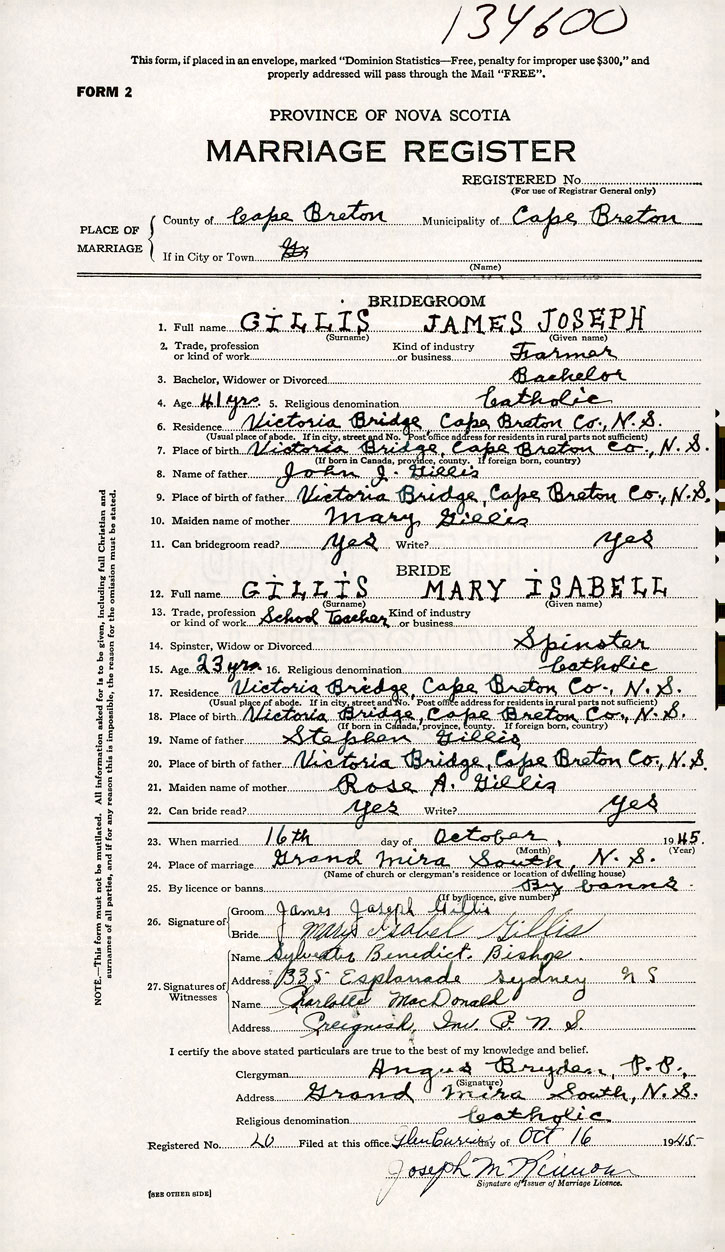 134600
This form, if placed in an envelope, marked “Dominion Statistics—Free, penalty for improper use $300,” and
properly addressed will pass through the Mail “FREE”.
FORM 2
PROVINCE OF NOVA SCOTIA
MARRIAGE REGISTER
REGISTERED No.
(For use of Registrar General only)
PLACE OF MARRIAGE
County of Cape Breton Municipality of Cape Breton
If in City or Town
(Name)
BRIDEGROOM
1. Full name GILLIS JAMES JOSEPH
(Surname) (Given name)
2. Trade, profession or kind of work Kind of industry or business Farmer
3. Bachelor, Widower or Divorced Bachelor
4. Age 41 yrs 5. Religious denomination Catholic
6. Residence Victoria Bridge, Cape Breton Co., N.S.
(Usual place of abode. If in city, street and No. Post office address for residents in rural parts not sufficient)
7. Place of birth Victoria Bridge, Cape Breton Co., N.S.
(If born in Canada, province, county. If foreign born, country)
8. Name of father John J. Gillis
9. Place of birth of father Victoria Bridge, Cape Breton Co., N.S.
10. Maiden name of mother Mary Gillis
11. Can bridegroom read? yes Write? yes
BRIDE
12. Full name GILLIS MARY ISABELL
(Surname) (Given name)
13. Trade, profession or kind of work School Teacher Kind of industry or business
14. Spinster, Widow or Divorced Spinster
15. Age 23 yrs 16. Religious denomination Catholic
17. Residence Victoria Bridge, Cape Breton Co., N.S.
(Usual place of abode. If in city, street and No. Post office address for residents in rural parts not sufficient)
18. Place of birth Victoria Bridge, Cape Breton Co., N.S.
(If born in Canada, province, county. If foreign born, country)
19. Name of father Stephen Gillis
20. Place of birth of father Victoria Bridge, Cape Breton Co., N.S.
21. Maiden name of mother Rose A. Gillis
22. Can bride read? yes Write? yes
23. When married 16th day of October, 1945.
(Month) (Year)
24. Place of marriage Grand Mira South, N.S.
(Name of church or clergyman's residence or location of dwelling house)
25. By licence or banns By banns.
(If by licence, give number)
26. Signature of
Groom James Joseph Gillis
Bride Mary Isabel Gillis
27. Signatures of Witnesses
Name Sylvester Benedict. Bishop.
Address 335 Esplanade Sydney N S
Name Charlotte MacDonald
Address Creignish, Inv. C. N. S.
I certify the above stated particulars are true to the best of my knowledge and belief.
Clergyman Angus Bryden, P.P.,
(Signature)
Address Grand Mira South, N.S.
Religious denomination Catholic
Registered No. 20 Filed at this office day of Oct 16 1945
Joseph
Signature of Issuer of Marriage Licence.
[SEE OTHER SIDE]
NOTE.—This form must not be mutilated. All information asked for is to be given, including full Christian and
surnames of all parties, and if for any reason this is impossible, the reason for the omission must be stated.